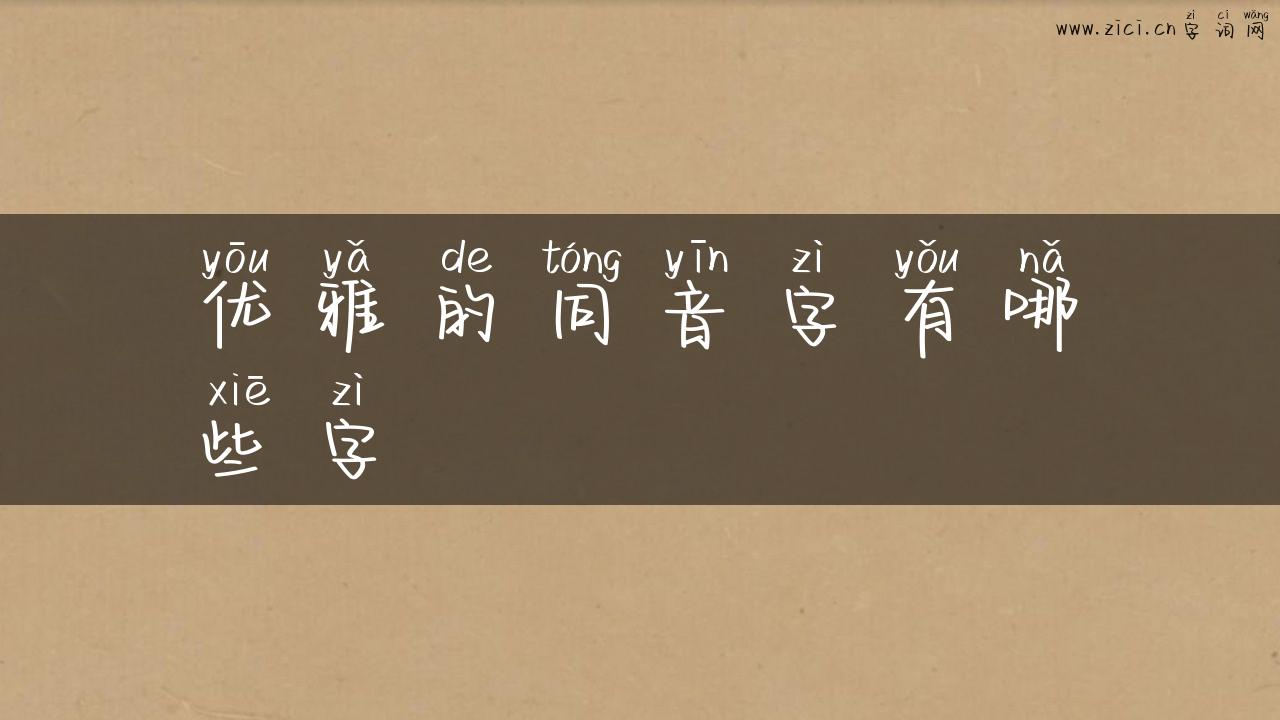 zì cí wǎng
www.zici.cn 字词网
yōu yǎ de tóng yīn zì yǒu nǎ
优雅的同音字有哪
xiē zì
些字